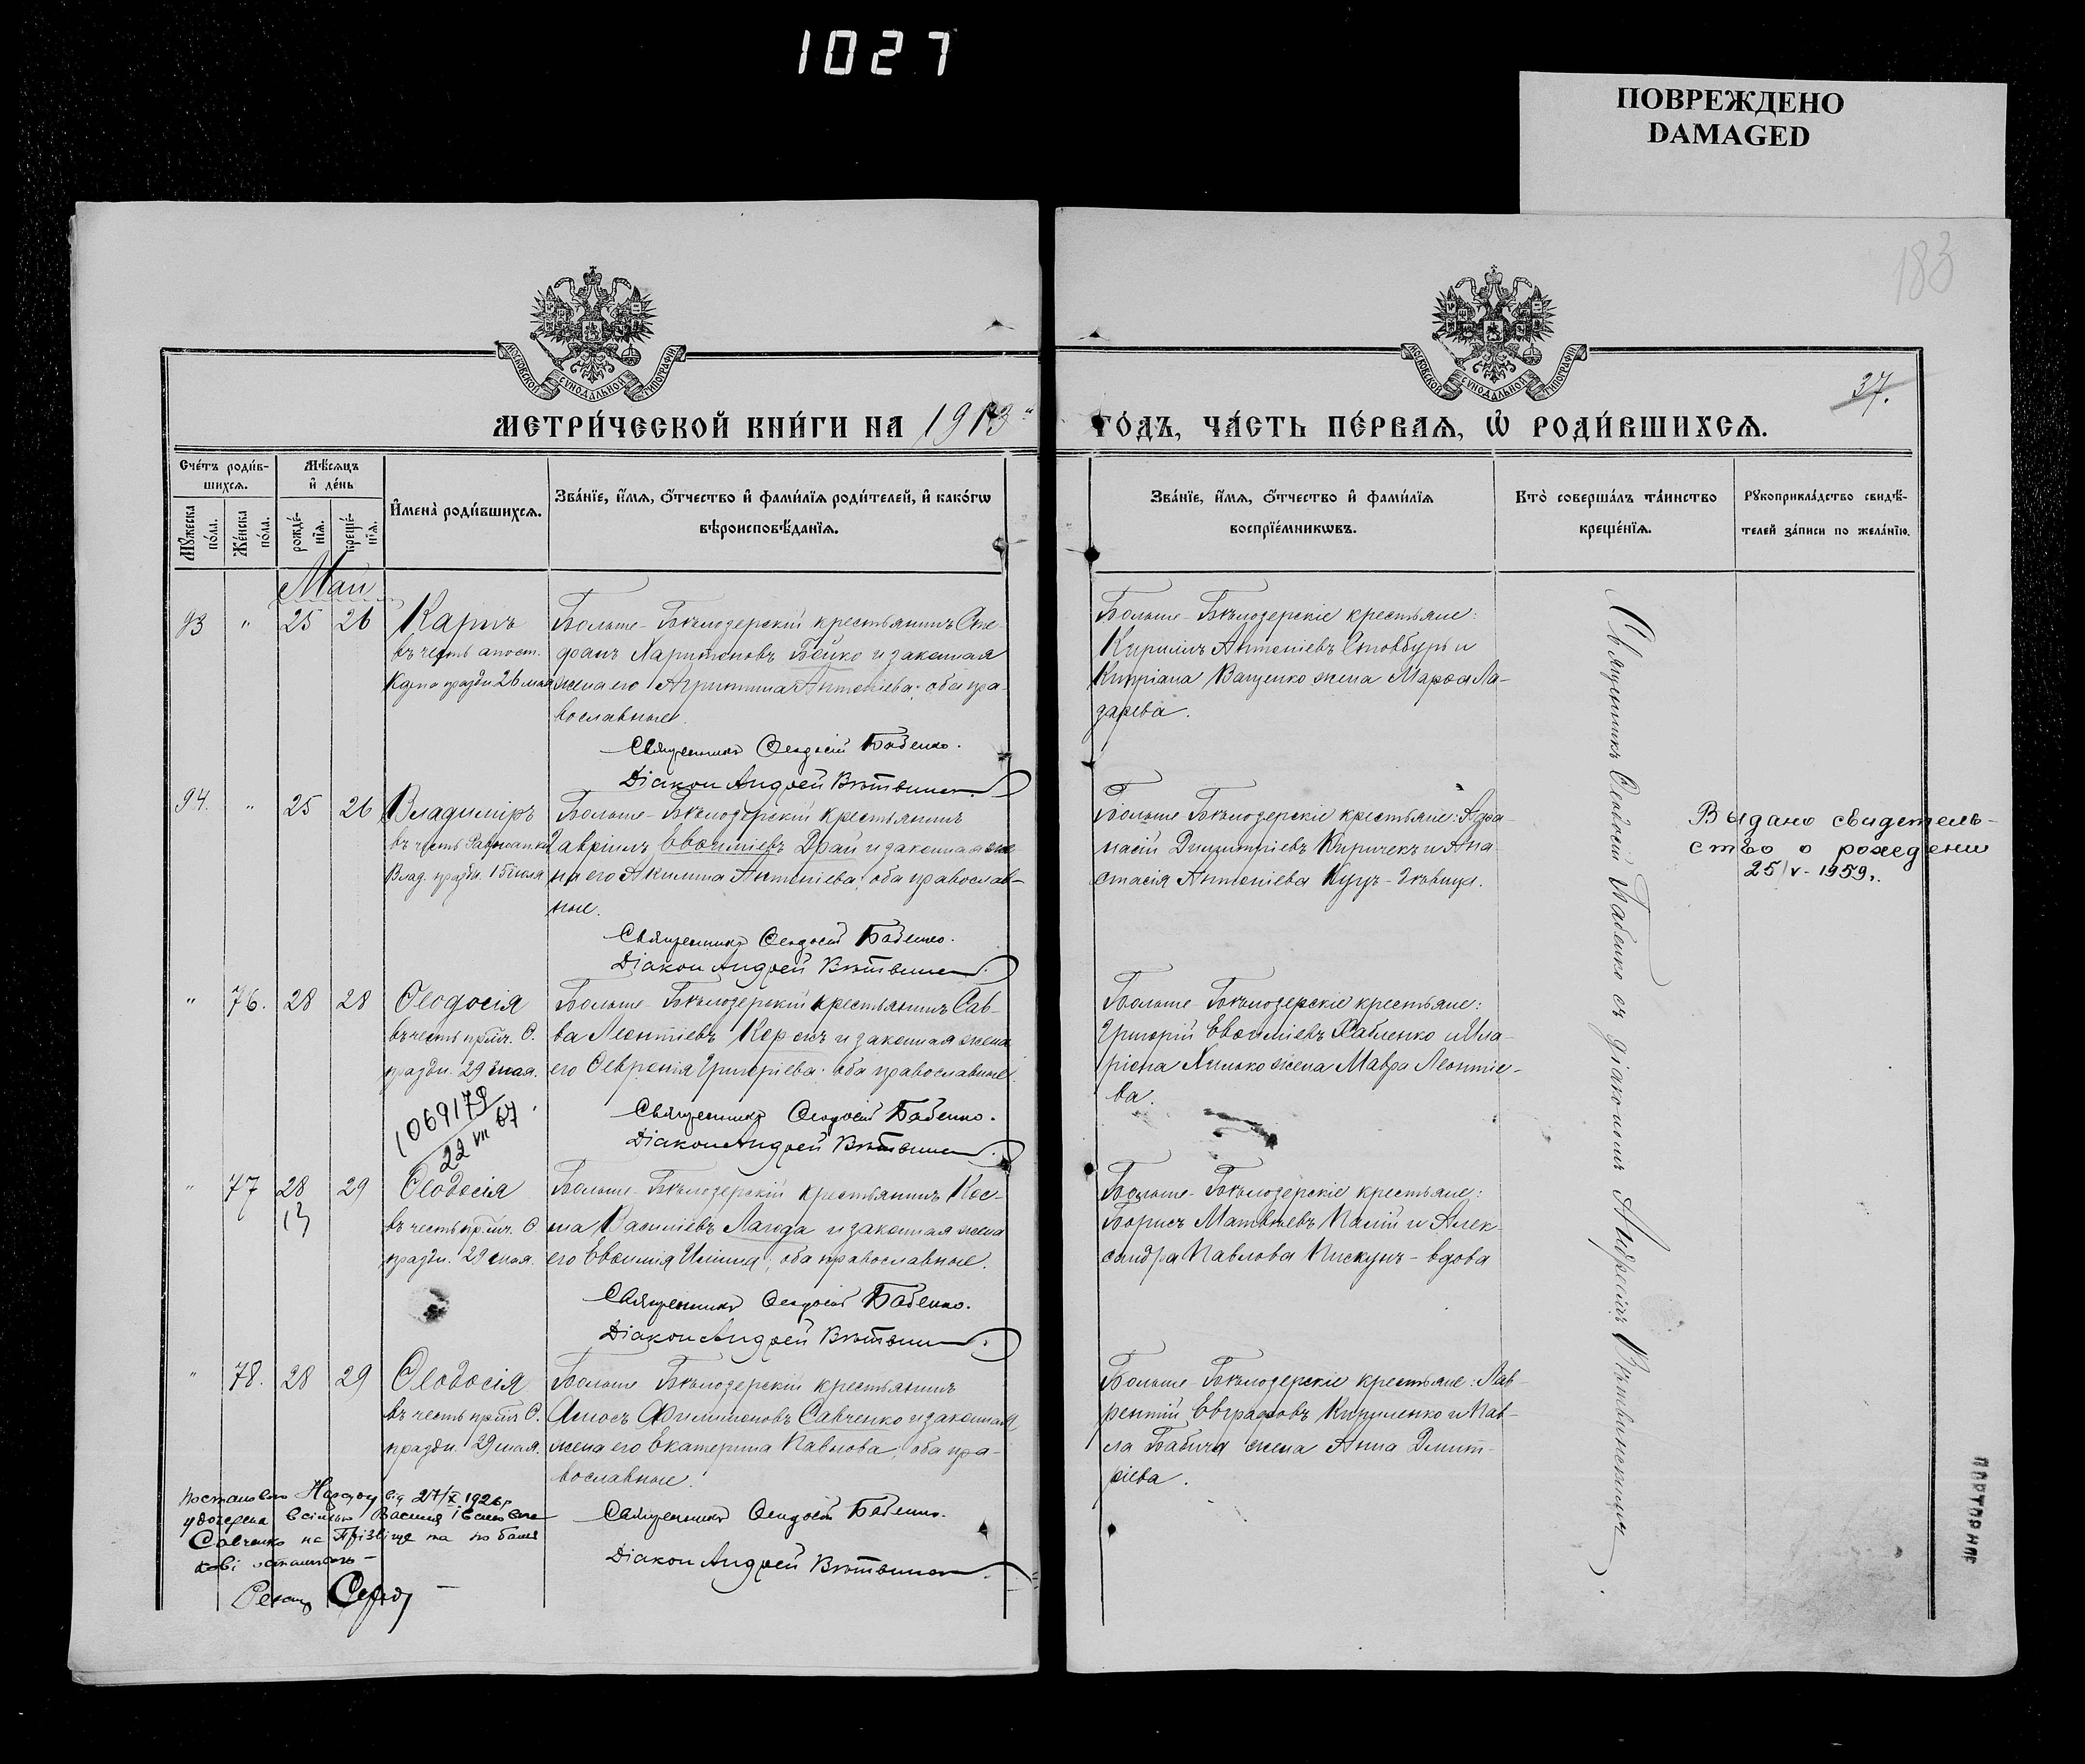 1027
ПОВРЕЖДЕНО
DAMAGED
183
МОСКОВСКОЙ СУНОДАЛЬНОЙ ТИПОГРАФІИ
МОСКОВСКОЙ СУНОДАЛЬНОЙ ТИПОГРАФІИ
37.
МЕТРИ́ЧЕСКОЙ КНИ́ГИ НА 1913
ГО́ДЪ, ЧА́СТЬ ПЕ́РВАѦ, Ѡ҆ РОДИ́ВШИХСѦ.
Сче́тъ роди́в-
шихсѧ.
Мꙋ́жеска по́ла.
Же́нска по́ла.
Мѣ́сѧцъ
и҆ де́нь
рожде́-
нїѧ.
креще́-
нїѧ.
И҆мена̀ роди́вшихсѧ.
Зва́нїе, и҆́мѧ, ѻ҆́тчество и҆ фами́лїѧ роди́телей, и҆ како́гѡ
вѣроисповѣ́данїѧ.
Зва́нїе, и҆́мѧ, ѻ҆́тчество и҆ фами́лїѧ
воспрїе́мникѡвъ.
Кто̀ соверша́лъ та́инство
креще́нїѧ.
Рꙋкоприкла́дство свидѣ́-
телей за́писи по жела́нїю.
Май
93 " 25 26 Карпъ
въ честь апост.
Карпа праздн. 26 мая
Больше-Бѣлозерскій крестьянинъ Сте-
фанъ Харитоновъ Бойко и законная
жена его Агрипина Антоніева; оба пра-
вославные.
Священникъ Ѳеодосій Бабенко.
Діакон Андрей Вѣтвин
Больше-Бѣлозерскіе крестьяне:
Кириллъ Антоніевъ Стовбуръ и
Кипріана Ващенко жена Марѳа Ла-
зарева.
94. " 25 26 Владиміръ
въ честь Равноапн
Влад. праздн. 15 іюля
Больше-Бѣлозерскій крестьянинъ
Гавріилъ Евѳиміевъ Драй и законная же-
на его Акилина Антоніева; оба православ-
ные.
Священникъ Ѳеодосій Бабенко.
Діакон Андрей Вѣтвин
Больше Бѣлозерскіе крестьяне: Аѳа-
насій Димитріевъ Киричекъ и Ана-
стасія Антоніева Куцъ-дѣвица.
Выдано свидетель-
ство о рождении
25/V-1959г.
" 76. 28 28 Ѳеодосія
въ честь прмч. Ѳ.
праздн. 29 мая.
1069179
22 VII 67
Больше-Бѣлозерскій крестьянинъ Сав-
ва Леонтіевъ Коржъ и законная жена
его Ѳевронія Григоріева; оба православные.
Священникъ Ѳеодосій Бабенко.
Діакон Андрей Вѣтвин
Больше-Бѣлозерскіе крестьяне:
Григорій Евѳиміевъ Хабленко и Ила-
ріона Хилько жена Мавра Леонтіе-
ва.
" 77 28 29 Ѳеодосія
13
въ честь прмч. Ѳ
праздн. 29 мая.
Больше-Бѣлозерскій крестьянинъ Кос-
ма Василіевъ Лагода и законная жена
его Евѳимія Ильина; оба православные.
Священникъ Ѳеодосій Бабенко.
Діакон Андрей Вѣтвин
Больше-Бѣлозерскіе крестьяне:
Борисъ Матвѣевъ Палій и Алек-
сандра Павлова Пискунъ-вдова
" 78. 28 29 Ѳеодосія
въ честь прмч Ѳ.
праздн. 29 мая.
Больше Бѣлозерскій крестьянинъ
Амосъ Филимоновъ Савченко и законная
жена его Екатерина Павлова; оба пра-
вославные.
Священникъ Ѳеодосій Бабенко.
Діакон Андрей Вѣтвин
Больше-Бѣлозерскіе крестьяне: Лав-
рентій Евграфовъ Кириленко и Пав-
ла Бабича жена Анна Димит-
ріева.
Священникъ Ѳеодосій Бабенко съ діакономъ Андреемъ Вѣтвинскимъ.
від 27/X 1926р
Савченко на Прізвіще та по бать
кові